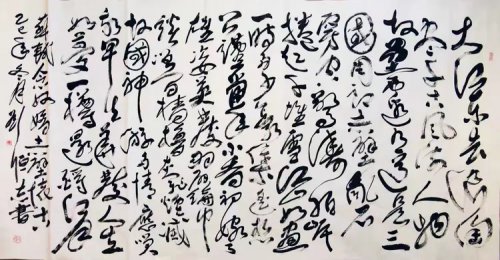 大江东去浪淘
尽千古风流人物
故垒西边人道是三
國周郎赤壁乱石
穿空惊涛拍岸
捲起千堆雪江山如画
一时多少豪杰遥想
公瑾当年小乔初嫁了
雄姿英发羽扇纶巾
谈笑间樯橹灰飞烟灭
故國神游多情应笑
我早生华发人生
如梦一樽还酹江月
苏轼念奴娇赤壁怀古
年冬月 书